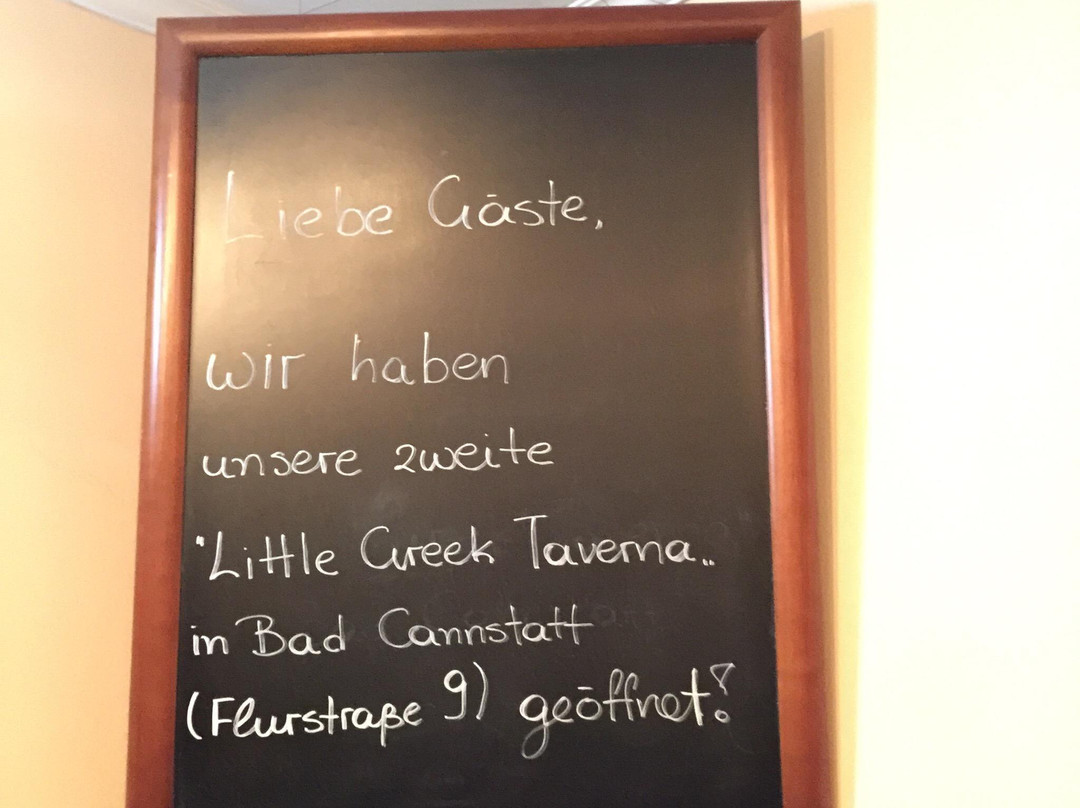 Liebe Gäste,
wir haben
unsere zweite
"Little Greek Taverna"
in Bad Cannstatt
(Flurstraße 9) geöffnet!